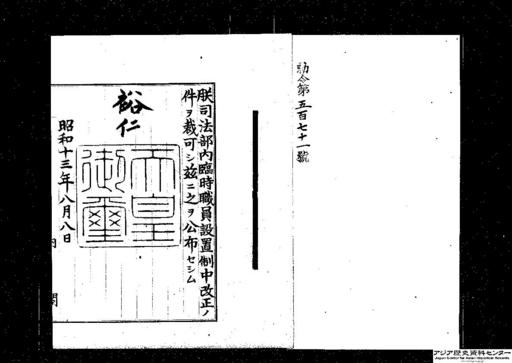 勅令第五百七十一號
朕司法部內臨時職員設置制中改正ノ
件ヲ裁可シ玆ニ之ヲ公布セシム
裕仁
天皇
御璽
昭和十三年八月八日
內閣
アジア歴史資料センター
Japan Center for Asian Historical Records